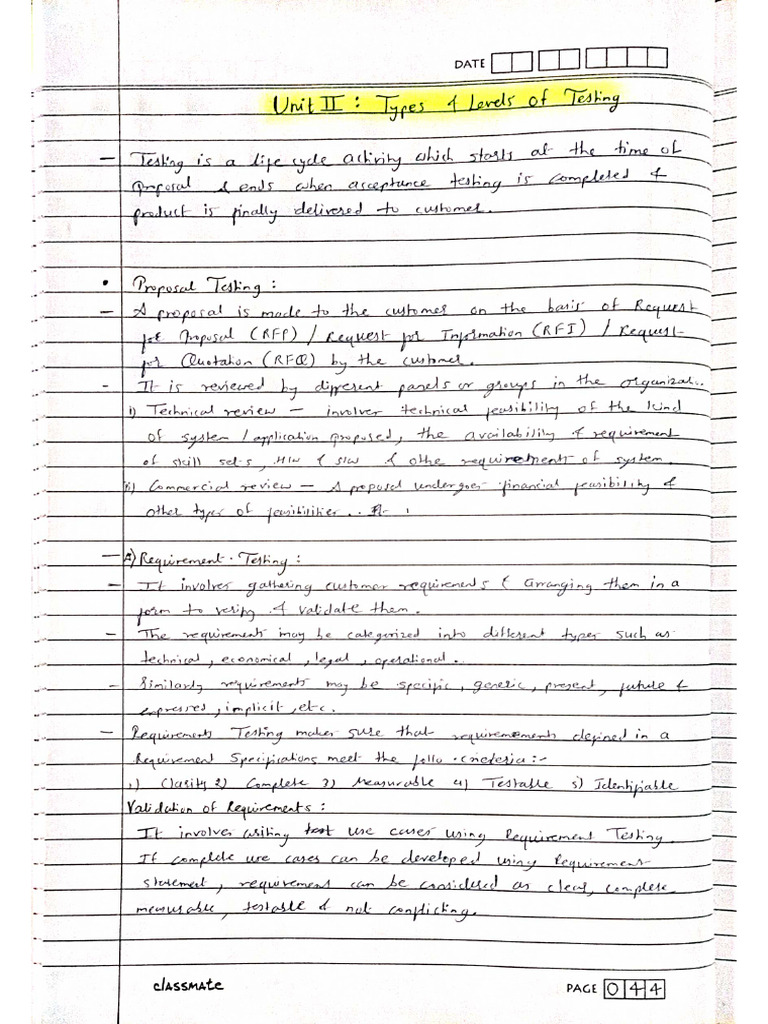 DATE
Unit II : Types & Levels of Testing
– Testing is a life cycle activity which starts at the time of
proposal & ends when acceptance testing is completed &
product is finally delivered to customer.
• Proposal Testing :
– A proposal is made to the customer on the basis of Request
for Proposal (RFP) / Request for Information (RFI) / Request
for Quotation (RFQ) by the customer.
- It is reviewed by different panels or groups in the organizat..
i) Technical review – involves technical feasibility of the kind
of system / application proposed, the availability & requirement
of skill sets, H/W & S/W & othe requirements of system.
ii) Commercial review – A proposal undergoes financial feasibility &
other types of feasibilities.
– A) Requirement Testing :
- It involves gathering customer requirements & arranging them in a
form to verify & validate them.
- The requirements may be categorized into different types such as
technical, economical, legal, operational.
- Similarly requirements may be specific, generic, present, future &
expresses, implicit, etc.
– Requirements Testing makes sure that requirements defined in a
Requirement Specifications meet the follo. criteria :-
1) Clarity 2) Complete 3) Measurable 4) Testable 5) Identifiable
Validation of Requirements :
It involves writing test use cases using Requirement Testing.
If complete use cases can be developed using Requirement
statement, requirement can be considered as clear, complete
measurable, testable & not conflicting.
classmate
PAGE 044